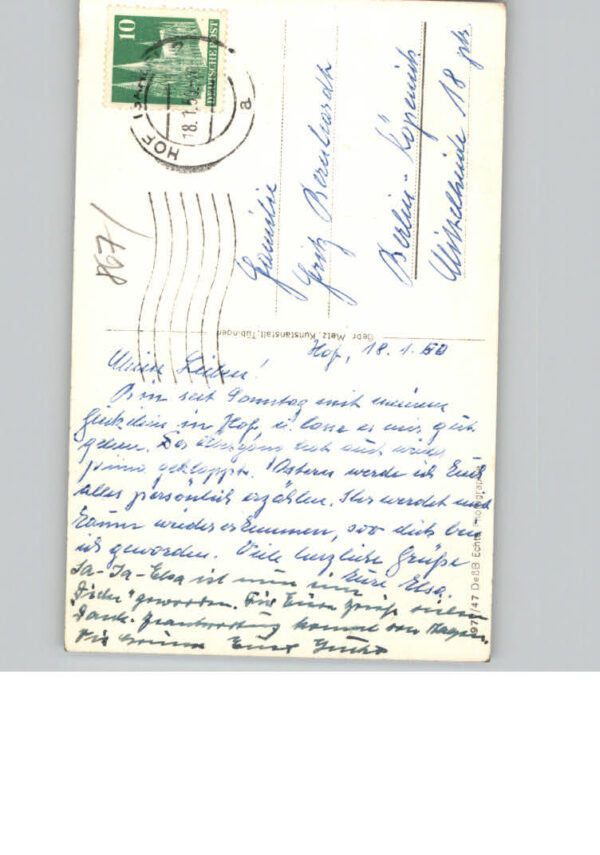 10
DEUTSCHE POST
HOF
18.1.
a
867/
Familie
Fritz Bernhardt
Berlin-Köpenick
Mittelheide 18 ptr
Gebr. Metz, Kunstanstalt, Tübingen
Hof, 18.1.50
Meine Lieben!
Bin seit Sonntag mit meinem
in Hof u. lass es mir gut
gehen. Der hat auch
prima geklappt. Ostern werde ich Euch
alles persönlich erzählen. Ihr werdet mich
kaum wiedererkennen, soo dick bin
ich geworden. Viele herzliche Grüße
Eure Elsa.
Ja-Ja-Elsa ist nun im
geworden. Für Eure Grüße vielen
Dank. Beantwortung kommt von Hagen.
Eure
/47 DeBB Echte Photographie